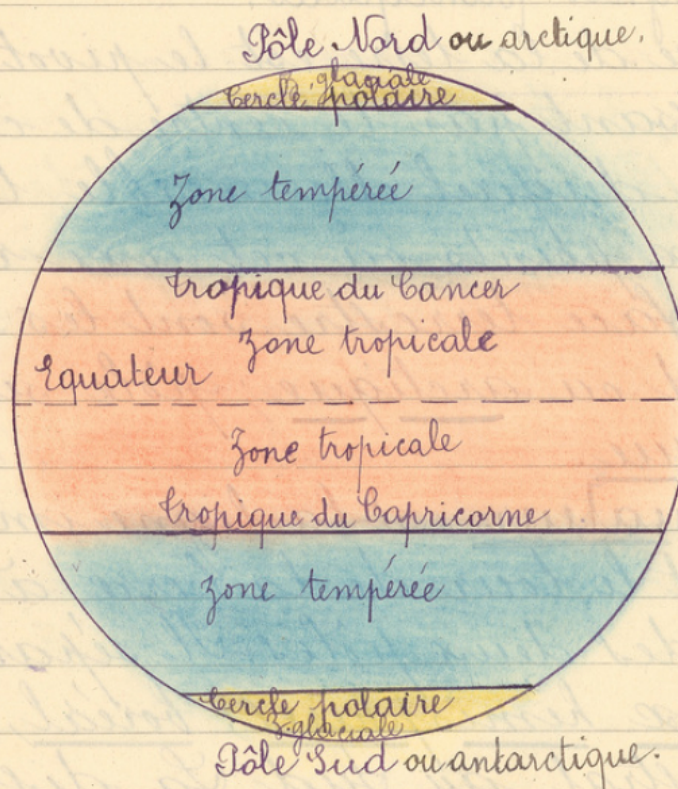 Pôle Nord ou arctique.
glaciale
Cercle polaire
Zone tempérée
tropique du Cancer
Zone tropicale
Equateur
Zone tropicale
tropique du Capricorne
Zone tempérée
Cercle polaire
Z. glaciale
Pôle Sud ou antarctique.